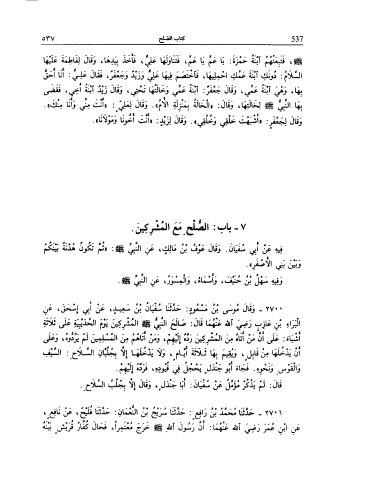 ٥٣٧ كتاب الصلح 537
، فَتَبِعَتْهُمُ ابْنَةُ حَمْزَةَ: يَا عَمِّ، يَا عَمِّ، فَتَنَاوَلَهَا عَلِيٌّ، فَأَخَذَ بِيَدِهَا، وَقَالَ لِفَاطِمَةَ عَلَيْهَا
السَّلَامُ: دُونَكِ ابْنَةَ عَمِّكِ احْمِلِيهَا، فَاخْتَصَمَ فِيهَا عَلِيٌّ وَزَيْدٌ وَجَعْفَرٌ، فَقَالَ عَلِيٌّ: أَنَا أَحَقُّ
بِهَا، وَهِيَ ابْنَةُ عَمِّي، وَقَالَ جَعْفَرٌ: ابْنَةُ عَمِّي وَخَالَتُهَا تَحْتِي، وَقَالَ زَيْدٌ: ابْنَةُ أَخِي، فَقَضَى
بِهَا النَّبِيُّ ﷺ لِخَالَتِهَا، وَقَالَ: «الْخَالَةُ بِمَنْزِلَةِ الْأُمِّ». وَقَالَ لِعَلِيٍّ: «أَنْتَ مِنِّي وَأَنَا مِنْكَ».
وَقَالَ لِجَعْفَرٍ: «أَشْبَهْتَ خَلْقِي وَخُلُقِي». وَقَالَ لِزَيْدٍ: «أَنْتَ أَخُونَا وَمَوْلَانَا».
٧ - باب: الصُّلْحِ مَعَ الْمُشْرِكِينَ.
فِيهِ عَنْ أَبِي سُفْيَانَ. وَقَالَ عَوْفُ بْنُ مَالِكٍ، عَنِ النَّبِيِّ ﷺ: «ثُمَّ تَكُونُ هُدْنَةٌ بَيْنَكُمْ
وَبَيْنَ بَنِي الْأَصْفَرِ».
وَفِيهِ سَهْلُ بْنُ حُنَيْفٍ، وَأَسْمَاءُ، وَالْمِسْوَرُ، عَنِ النَّبِيِّ ﷺ.
٢٧٠٠ - وَقَالَ مُوسَى بْنُ مَسْعُودٍ: حَدَّثَنَا سُفْيَانُ بْنُ سَعِيدٍ، عَنْ أَبِي إِسْحٰقَ، عَنِ
الْبَرَاءِ بْنِ عَازِبٍ رَضِيَ اللهُ عَنْهُمَا قَالَ: صَالَحَ النَّبِيُّ ﷺ الْمُشْرِكِينَ يَوْمَ الْحُدَيْبِيَةِ عَلَى ثَلَاثَةِ
أَشْيَاءَ: عَلَى أَنَّ مَنْ أَتَاهُ مِنَ الْمُشْرِكِينَ رَدَّهُ إِلَيْهِمْ، وَمَنْ أَتَاهُمْ مِنَ الْمُسْلِمِينَ لَمْ يَرُدُّوهُ، وَعَلَى
أَنْ يَدْخُلَهَا مِنْ قَابِلٍ، وَيُقِيمَ بِهَا ثَلَاثَةَ أَيَّامٍ، وَلَا يَدْخُلَهَا إِلَّا بِجُلُبَّانِ السِّلَاحِ: السَّيْفِ
وَالْقَوْسِ وَنَحْوِهِ. فَجَاءَ أَبُو جَنْدَلٍ يَحْجُلُ فِي قُيُودِهِ، فَرَدَّهُ إِلَيْهِمْ.
قَالَ: لَمْ يَذْكُرْ مُؤَمَّلٌ عَنْ سُفْيَانَ: أَبَا جَنْدَلٍ، وَقَالَ إِلَّا بِجُلُبِّ السِّلَاحِ.
٢٧٠١ - حَدَّثَنَا مُحَمَّدُ بْنُ رَافِعٍ: حَدَّثَنَا سُرَيْجُ بْنُ النُّعْمَانِ: حَدَّثَنَا فُلَيْحٌ، عَنْ نَافِعٍ،
عَنِ ابْنِ عُمَرَ رَضِيَ اللهُ عَنْهُمَا: أَنَّ رَسُولَ اللهِ ﷺ خَرَجَ مُعْتَمِرًا، فَحَالَ كُفَّارُ قُرَيْشٍ بَيْنَهُ